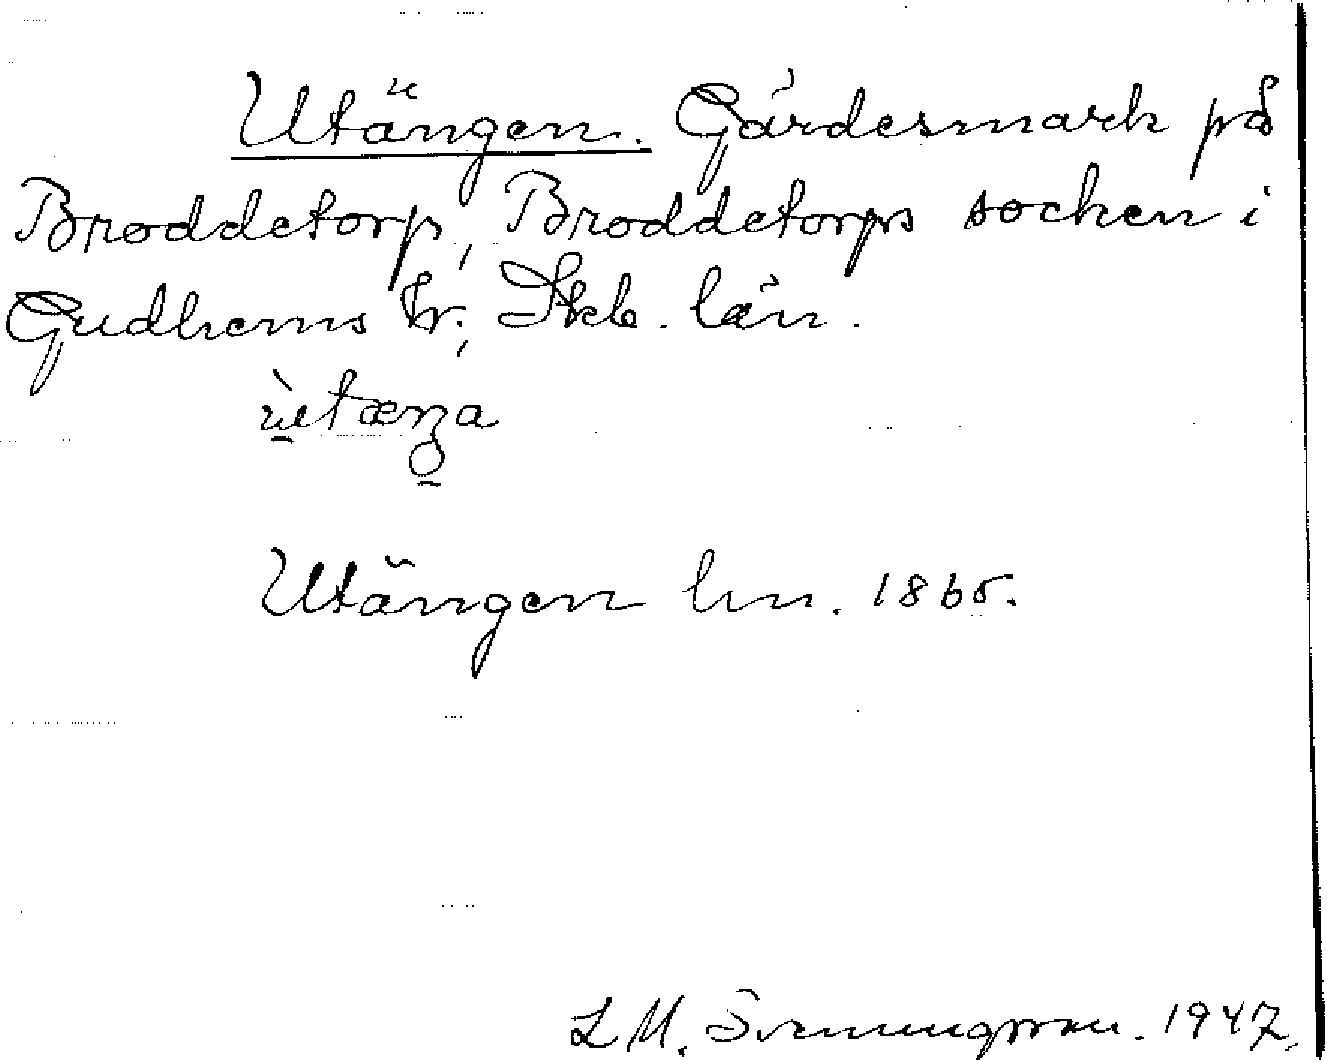 Utängen. Gärdesmark på
Broddetorp, Broddetorps socken i
Gudhems hr., Skb. län.
ùtæŋa
Utängen hm. 1865.
L M. Svenungsson. 1947.